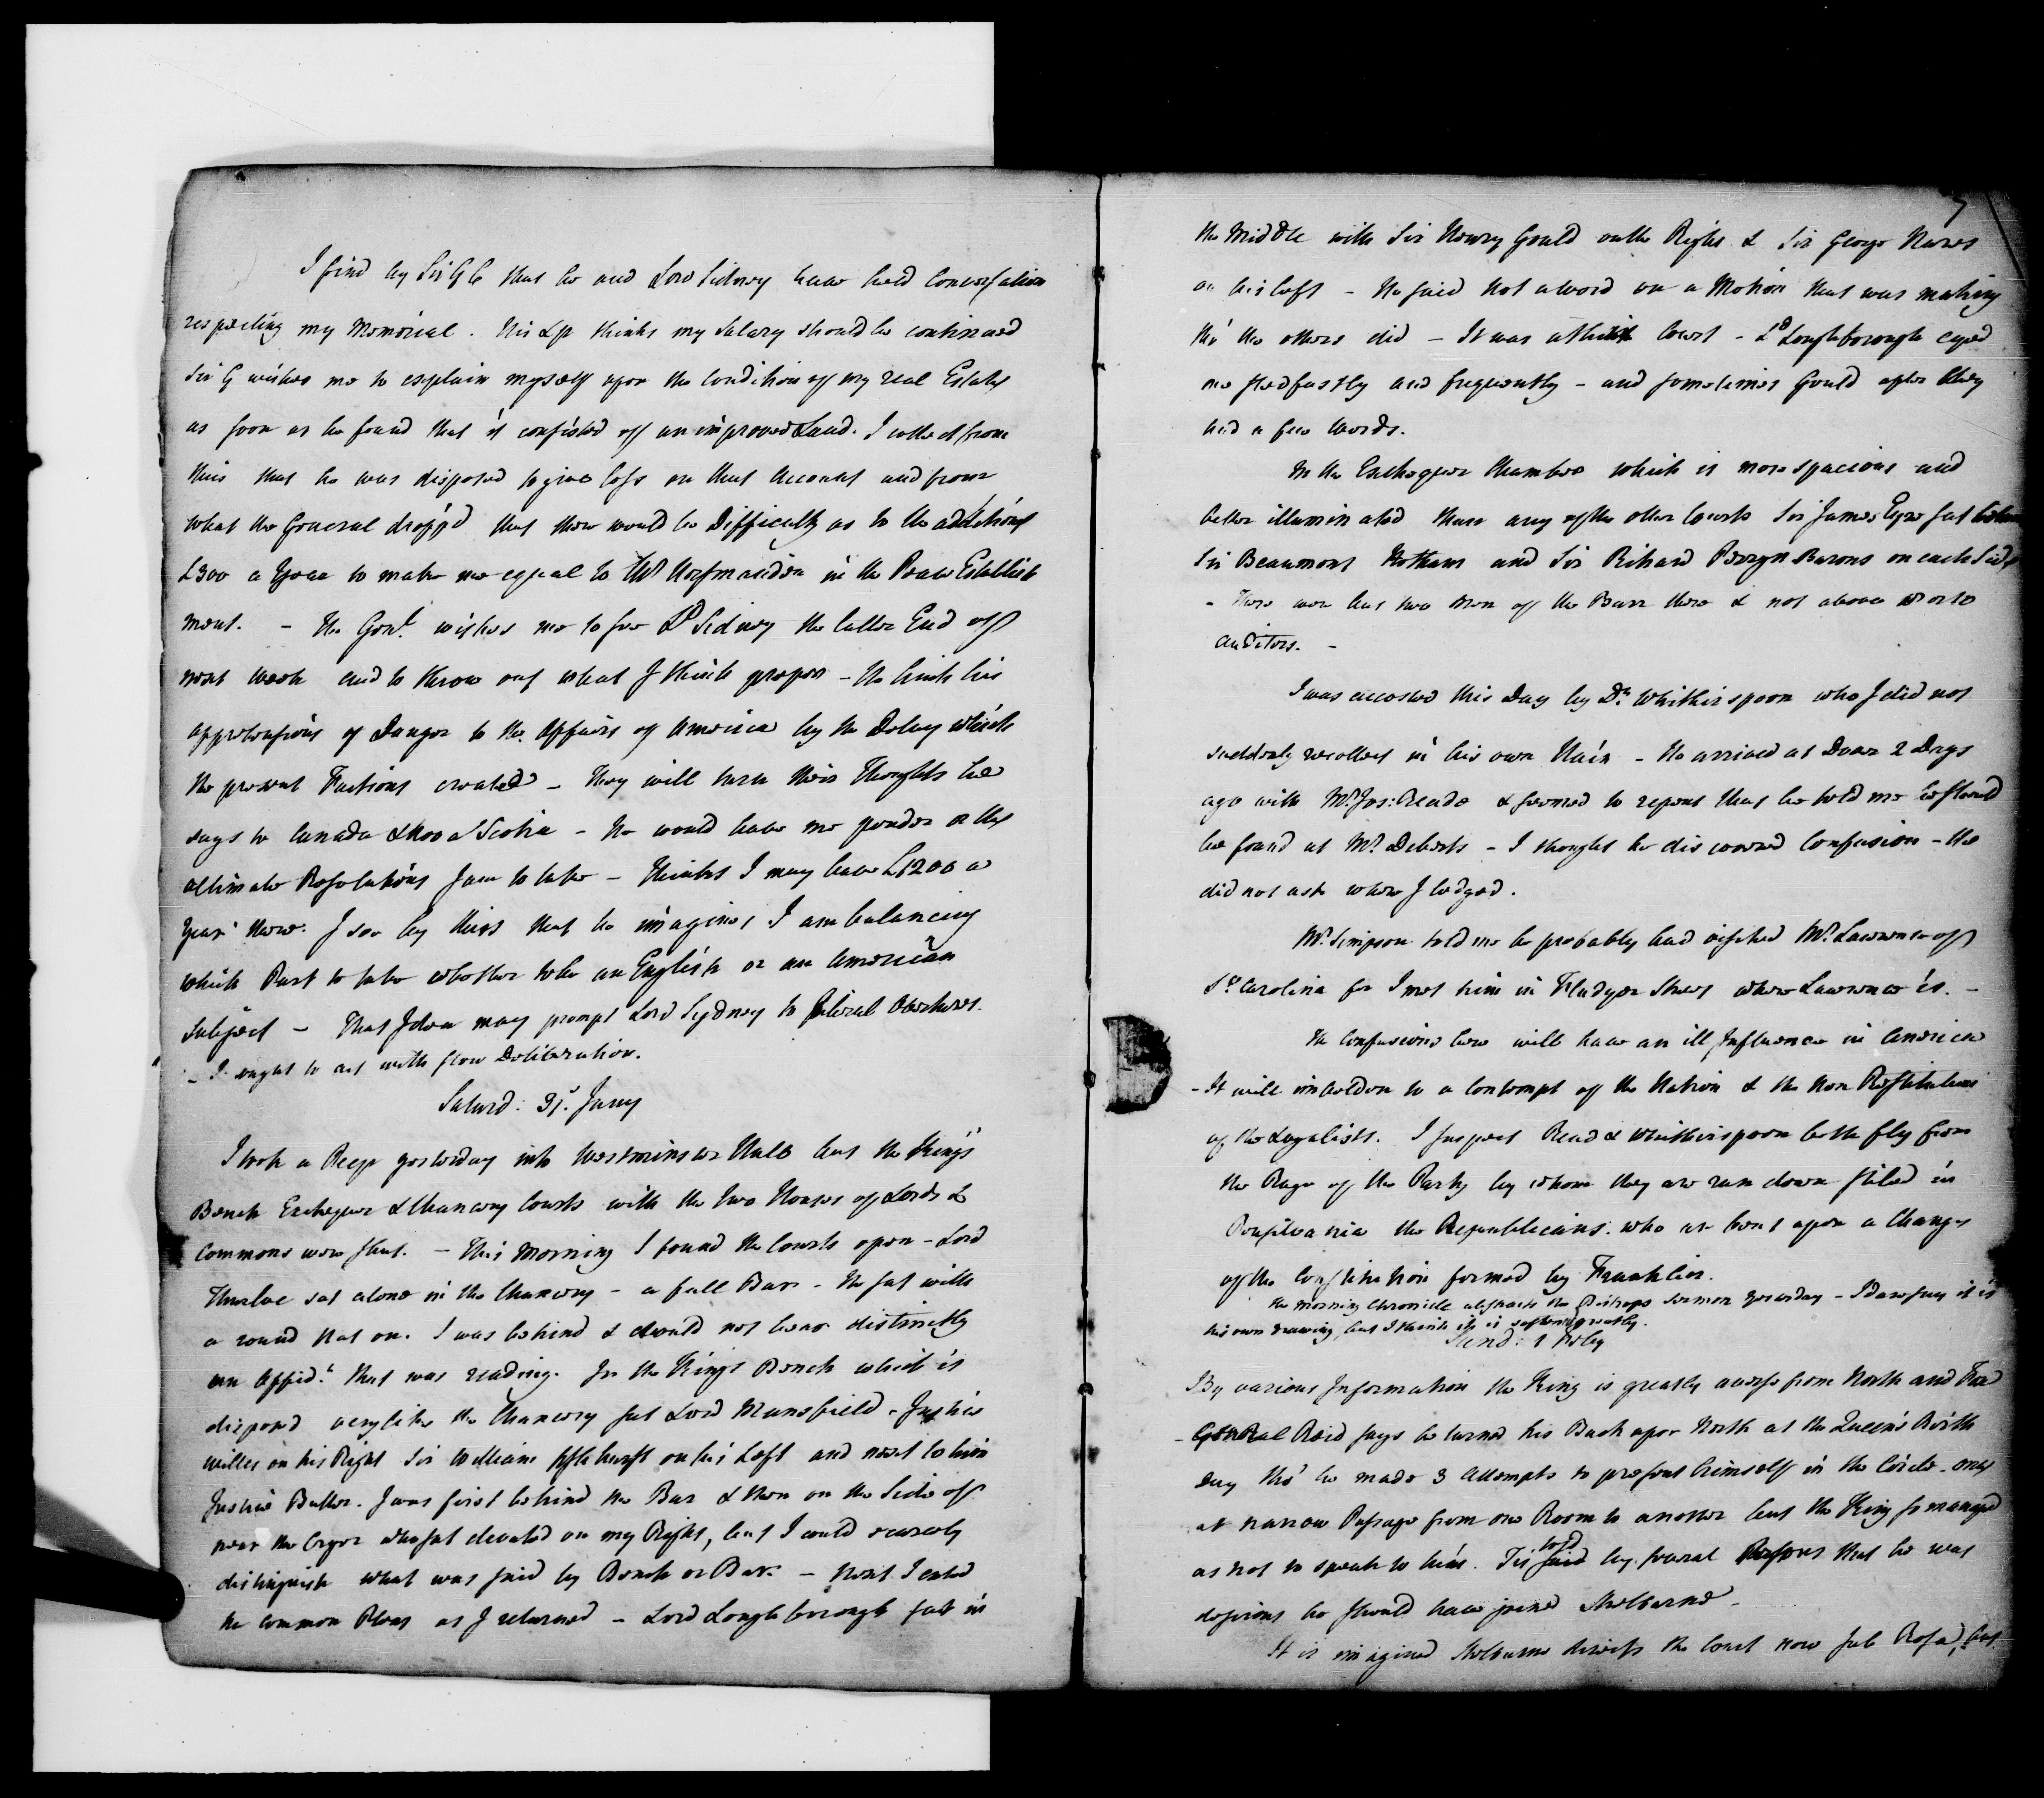 I find by Sir G C that he and Lord Sidney have had Conversation
respecting my Memorial. His Lp thinks my Salary should be continued
Sir G wishes me to explain myself upon the Condition of my real Estates
as soon as he found that it consisted of unimproved Land. I collect from
this that he was disposed to give less on that Account and from
what the General dropp'd that there would be Difficulty as to the additional
£300 a Year to make me equal to in the Peace Establish
ment. - The Genl. wishes me to see Ld Sidney the latter End of
next week and to throw out what I think proper - He hints his
apprehensions of Danger to the Affairs of America by the Delay which
the present Factions created - They will turn their Thoughts he
says to Canada & Nova Scotia - He would have me ponder on the
ultimate Resolutions I am to take - thinks I may have £1200 a
Year there. I see by this that he imagines I am balancing
which Part to take whether to be an English or an American
subject - That Idea may prompt Lord Sydney to liberal Overtures.
- I ought to act with slow Deliberation.
Saturd: 31. Jany
I took a Peep yesterday into Westminster Hall but the King's
Bench Exchequer & Chancery Courts with the two Houses of Lords &
Commons were shut. - This Morning I found the Courts open - Lord
Thurloe sat alone in the Chancery - a full Bar - He sat with
a round Hat on. I was behind & could not hear distinctly
an Affidt. that was reading. In the Kings Bench which is
disposed very like the Chancery sat Lord Mansfield - Justice
Willes on his Right Sir William Ashhurst on his Left and next to him
Justice Buller. I was first behind the Bar & then on the Side of
near the Cryer who sat elevated on my Right, but I could scarcely
distinguish what was said by Bench or Bar. - Next I entd
the Common Pleas as I returned - Lord Loughborough sat in
7
the Middle with Sir Henry Gould on the Right & Sir George Nares
on his left - He said not a word on a Motion that was making
tho' the others did - It was a thin Court - Ld Loughborough eyed
me stedfastly and frequently - and sometimes Gould after they
had a few Words.
In the Exchequer Chamber which is more spacious and
better illuminated than any of the other Courts Sir James Eyre sat between
Sir Beaumont Hotham and Sir Richard Perryn Barons on each Side
- There were but two Men of the Barr there & not above
Auditors. -
I was accosted this Day by Dr. Whitherspoon who I did not
suddenly recollect in his own Hair - He arrived at Dover 2 Days
ago with Mr. Jos: Reade & seemed to repent that he told me he should
be found at Mr. Deberts - I thought he discovered Confusion - He
did not ask where I lodged.
Mr. Simpson told me he probably had visited Mr. Lawrence of
So. Carolina for I met him in Fludyer Street where Lawrence is. -
The Confusions here will have an ill Influence in America
- It will imbolden to a Contempt of the Nation & the Non Restitution
of the Loyalists. I suspect Read & Whitherspoon both fly from
the Rage of the Party by whom they are run down stiled in
Pensilvania the Republicans. who are bent upon a Change
of the Constitution formed by Franklin.
The Morning Chronicle abstracts the Bishops Sermon Yesterday - I dare say it is
his own drawing, but I think it is softened greatly.
Sund: 1 Feby
By various Information the King is greatly averse from North and Fox
- General Reid says he turned his Back upon North at the Queen's Birth
day tho' he made 3 Attempts to present himself in the Circle - once
at narrow Passage from one Room to another but the King so managed
as not to speak to him. Tis said told by several Persons that he was
desirous he should have joined Shelburne -
It is imagined Shelburne directs the Court now sub Rosa, but